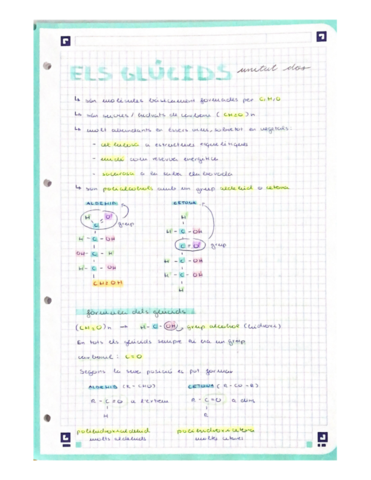 ELS GLÚCIDS unitat dos
↳ són molècules bàsicament formades per C, H, O
↳ són sucres / hidrats de carboni (CH2O)n
↳ molt abundants en éssers vius, sobretot en vegetals
- cel·lulosa a estructures esquelètiques
- midó com reserva energètica
- sacarosa a la saba elaborada
↳ són polialcohols amb un grup aldehid o cetona
ALDEHID CETONA
H O H
C grup H - C - OH
H - C - OH C = O grup
OH - C - H H - C - OH
H - C - OH H - C - OH
CH2OH H
fórmula dels glúcids:
(CH2O)n → H - C - OH grup alcohol (hidroxil)
En tots els glúcids sempre hi ha un grup
carbonil: C=O
Segons la seva posició es pot formar
ALDEHID (R-CHO) CETONA (R-CO-R)
R - C = O a extrem R - C = O, R dins
H R
polihidroxialdehid polihidroxicetona
molts aldehids moltes cetones